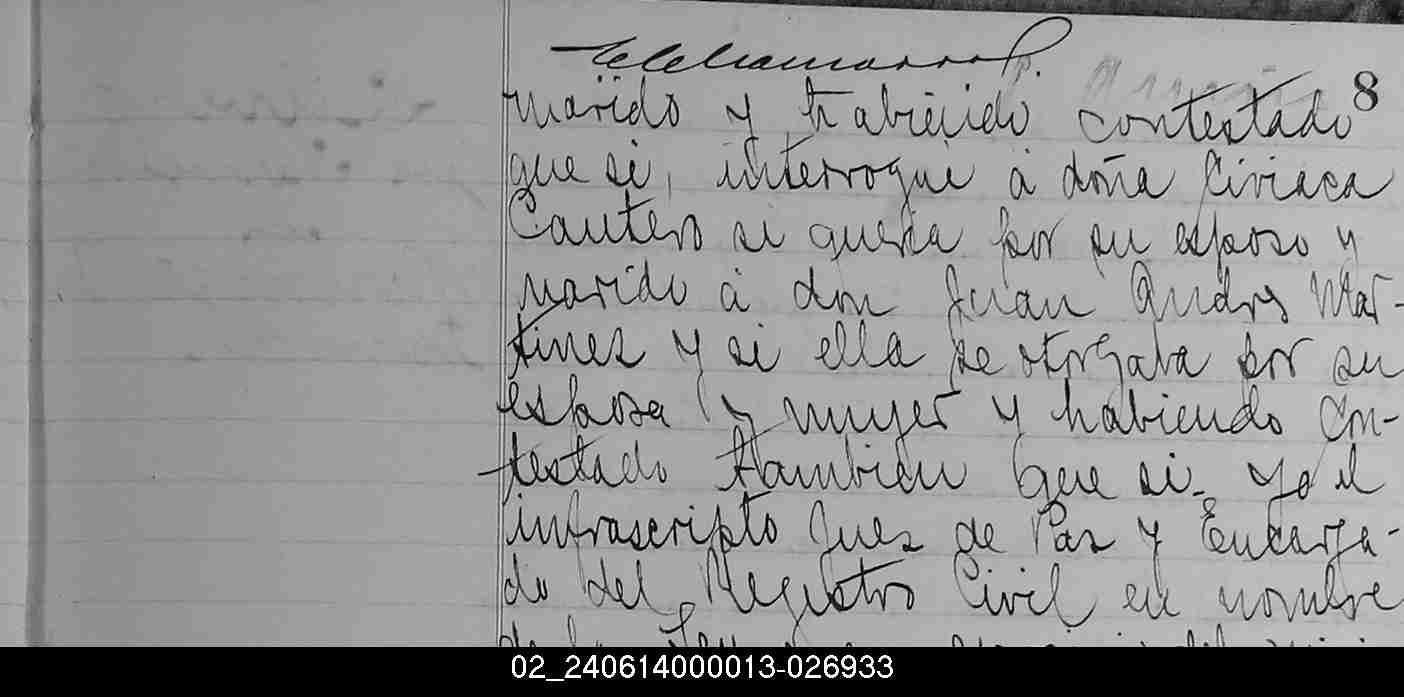 8
marido y habiendo contestado
que si, interrogué á doña Ciriaca
Cantero si queria por su esposo y
marido á don Juan Andres Mar-
tines y si ella se otorgaba por su
esposa y mujer y habiendo con-
testado tambien que si. Yo el
infrascripto Jues de Pas y Encarga-
do del Registro Civil en nombre
de la Ley
02_240614000013-026933